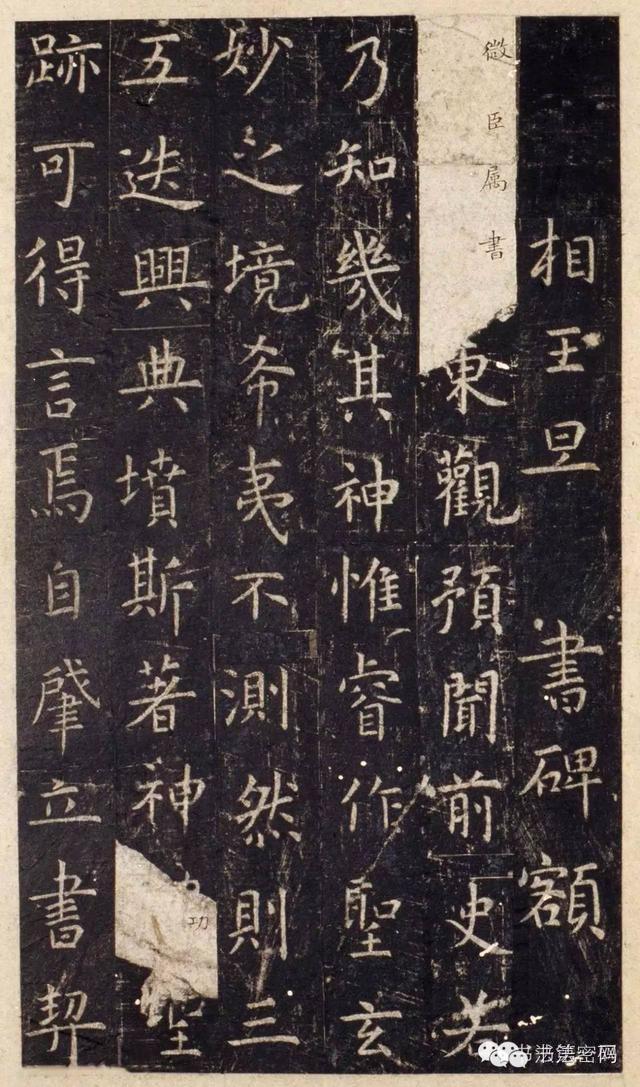 相王旦書碑額
微臣属書東觀預聞前史若
乃知幾其神惟睿作聖玄
妙之境希夷不測然則三
五迭興典墳斯著神功聖
跡可得言焉自肇立書契